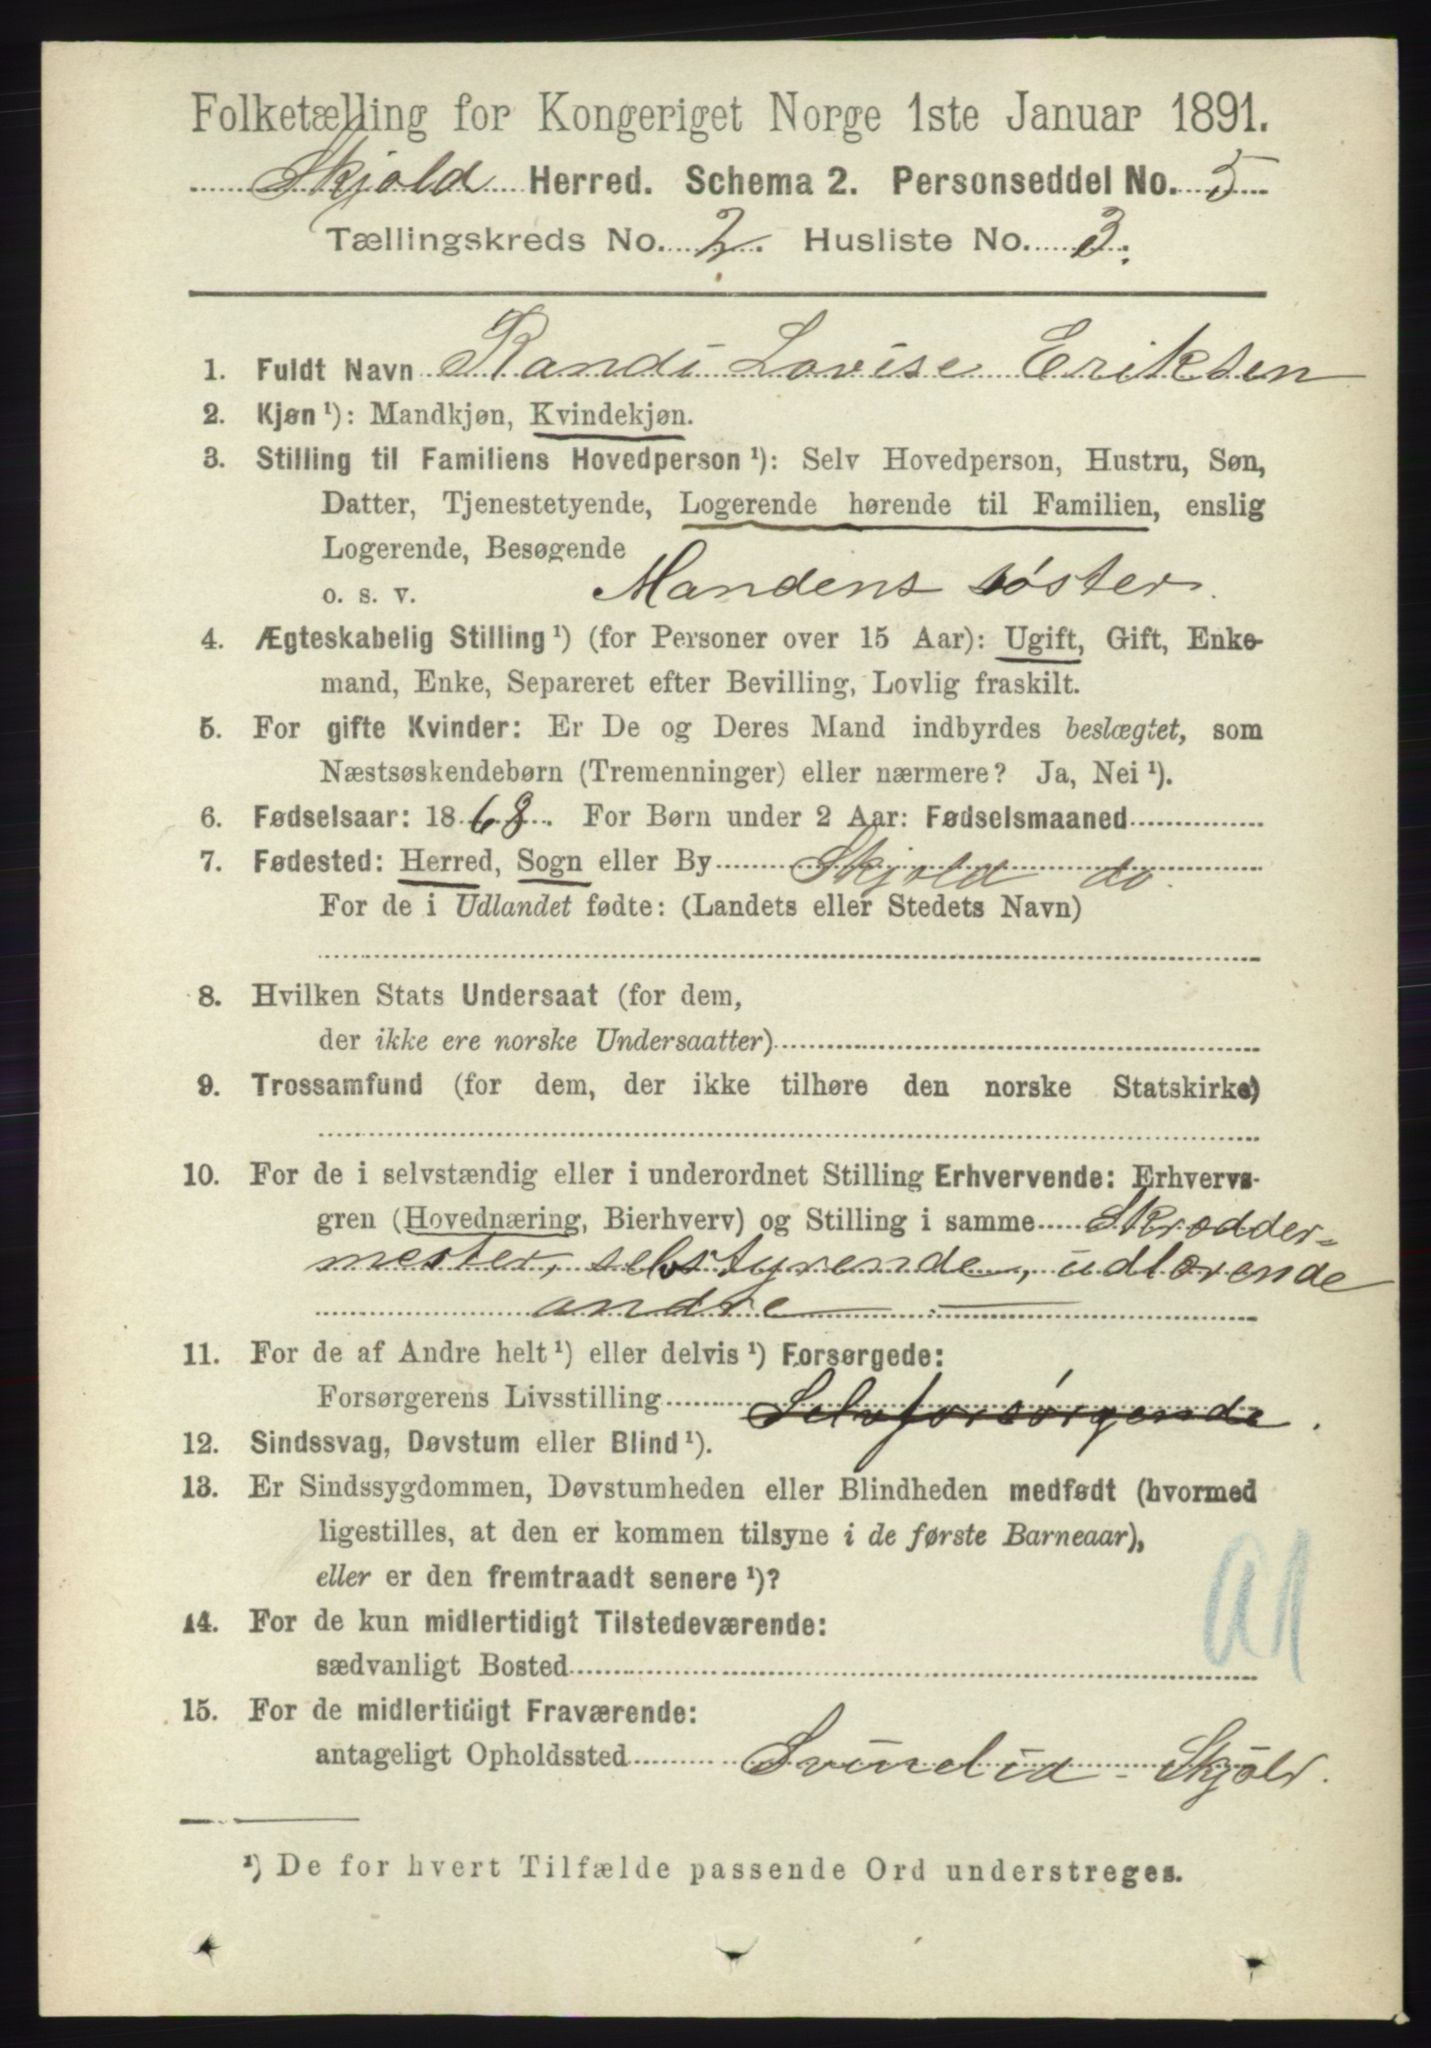 Folketælling for Kongeriget Norge 1ste Januar 1891.
Skjold Herred. Schema 2. Personseddel No. 5
Tællingskreds No. 2. Husliste No. 3.
1. Fuldt Navn Randi Lovise Eriksen
2. Kjøn ¹): Mandkjøn, Kvindekjøn.
3. Stilling til Familiens Hovedperson ¹): Selv Hovedperson, Hustru, Søn,
Datter, Tjenestetyende, Logerende hørende til Familien, enslig
Logerende, Besøgende
o. s. v. Mandens søster.
4. Ægteskabelig Stilling ¹) (for Personer over 15 Aar): Ugift, Gift, Enke-
mand, Enke, Separeret efter Bevilling, Lovlig fraskilt.
5. For gifte Kvinder: Er De og Deres Mand indbyrdes beslægtet, som
Næstsøskendebørn (Tremenninger) eller nærmere? Ja, Nei ¹).
6. Fødselsaar: 1868. For Børn under 2 Aar: Fødselsmaaned
7. Fødested: Herred, Sogn eller By Skjold do.
For de i Udlandet fødte: (Landets eller Stedets Navn)
8. Hvilken Stats Undersaat (for dem,
der ikke ere norske Undersaatter)
9. Trossamfund (for dem, der ikke tilhøre den norske Statskirke)
10. For de i selvstændig eller i underordnet Stilling Erhvervende: Erhvervs-
gren (Hovednæring, Bierhverv) og Stilling i samme Skrædder=
mester, selvstyrende, udlærende
andre
11. For de af Andre helt ¹) eller delvis ¹) Forsørgede:
Forsørgerens Livsstilling Selvforsørgende.
12. Sindssvag, Døvstum eller Blind ¹).
13. Er Sindssygdommen, Døvstumheden eller Blindheden medfødt (hvormed
ligestilles, at den er kommen tilsyne i de første Barneaar),
eller er den fremtraadt senere ¹)?
14. For de kun midlertidigt Tilstedeværende:
sædvanligt Bosted
a1
15. For de midlertidigt Fraværende:
antageligt Opholdssted Svinelid - Skjold.
¹) De for hvert Tilfælde passende Ord understreges.